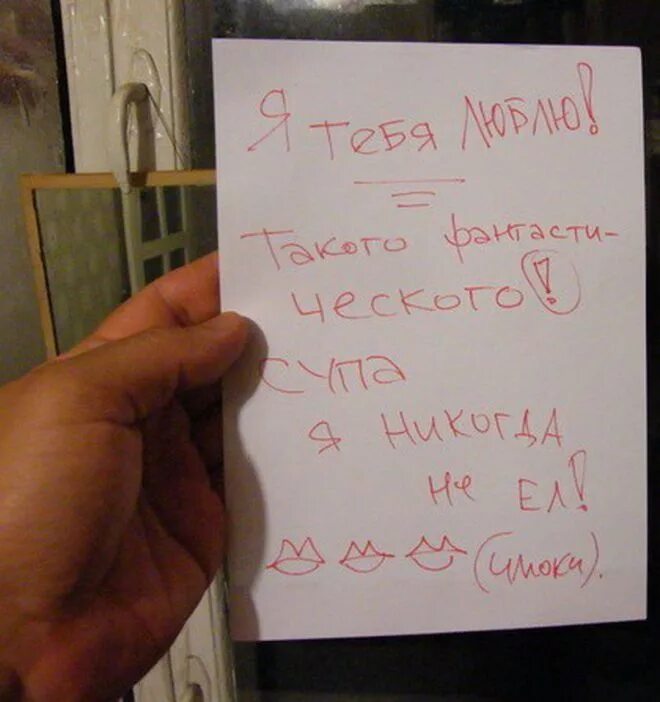 Я тебя ЛЮБЛЮ!
Такого фантасти-
ческого!
супа
я никогда
не ел!
(чмоки).